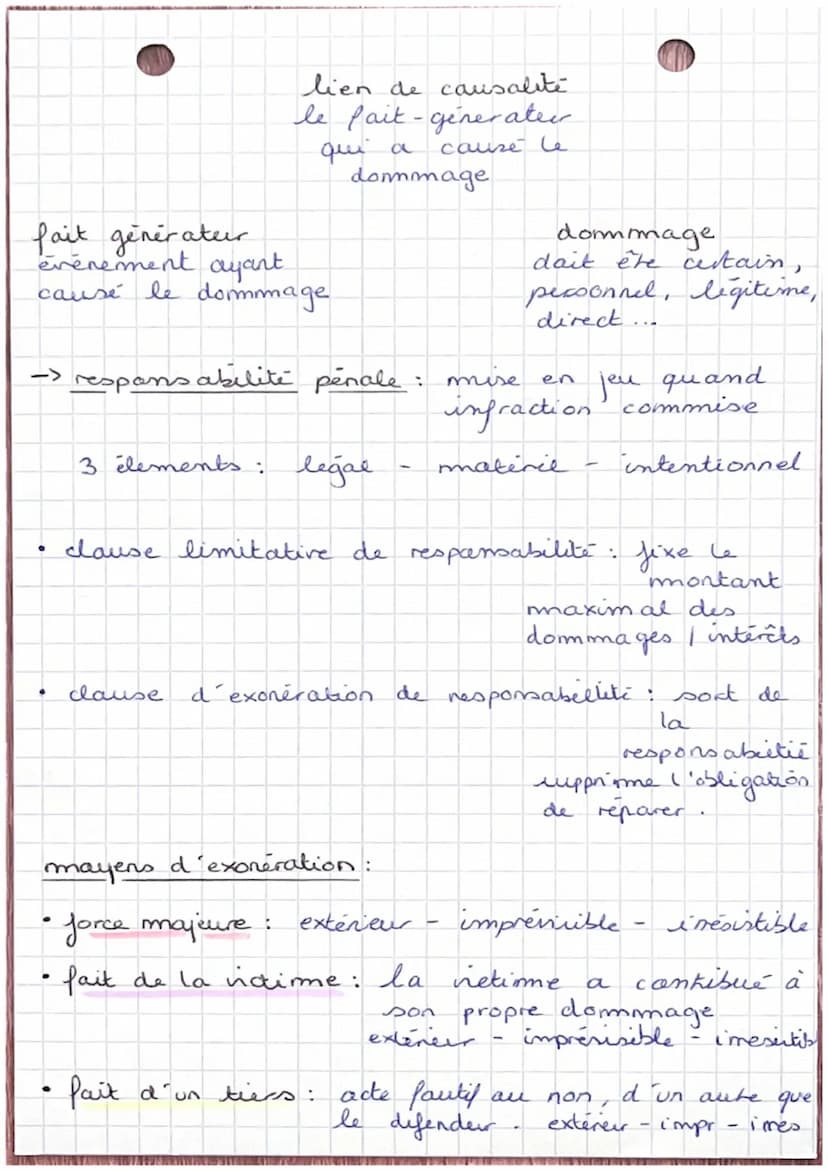 lien de causalité
le fait-générateur
qui a causé le
dommage
fait générateur
évènement ayant
causé le dommage
dommage
doit être certain,
personnel, légitime,
direct ...
-> responsabilité pénale : mise en jeu quand
infraction commise
3 élements : légal - matériel - intentionnel
• clause limitative de responsabilité : fixe le
montant
maximal des
dommages / intérêts
• clause d'exonération de responsabilité : sort de
la
responsabilité
supprime l'obligation
de réparer.
moyens d'exonération :
• force majeure : extérieur - imprévisible - irrésistible
• fait de la victime : la victime a contribué à
son propre dommage
extérieur - imprévisible - irresistib
• fait d'un tiers : acte fautif ou non, d'un autre que
le défendeur. extérieur - impr - irres